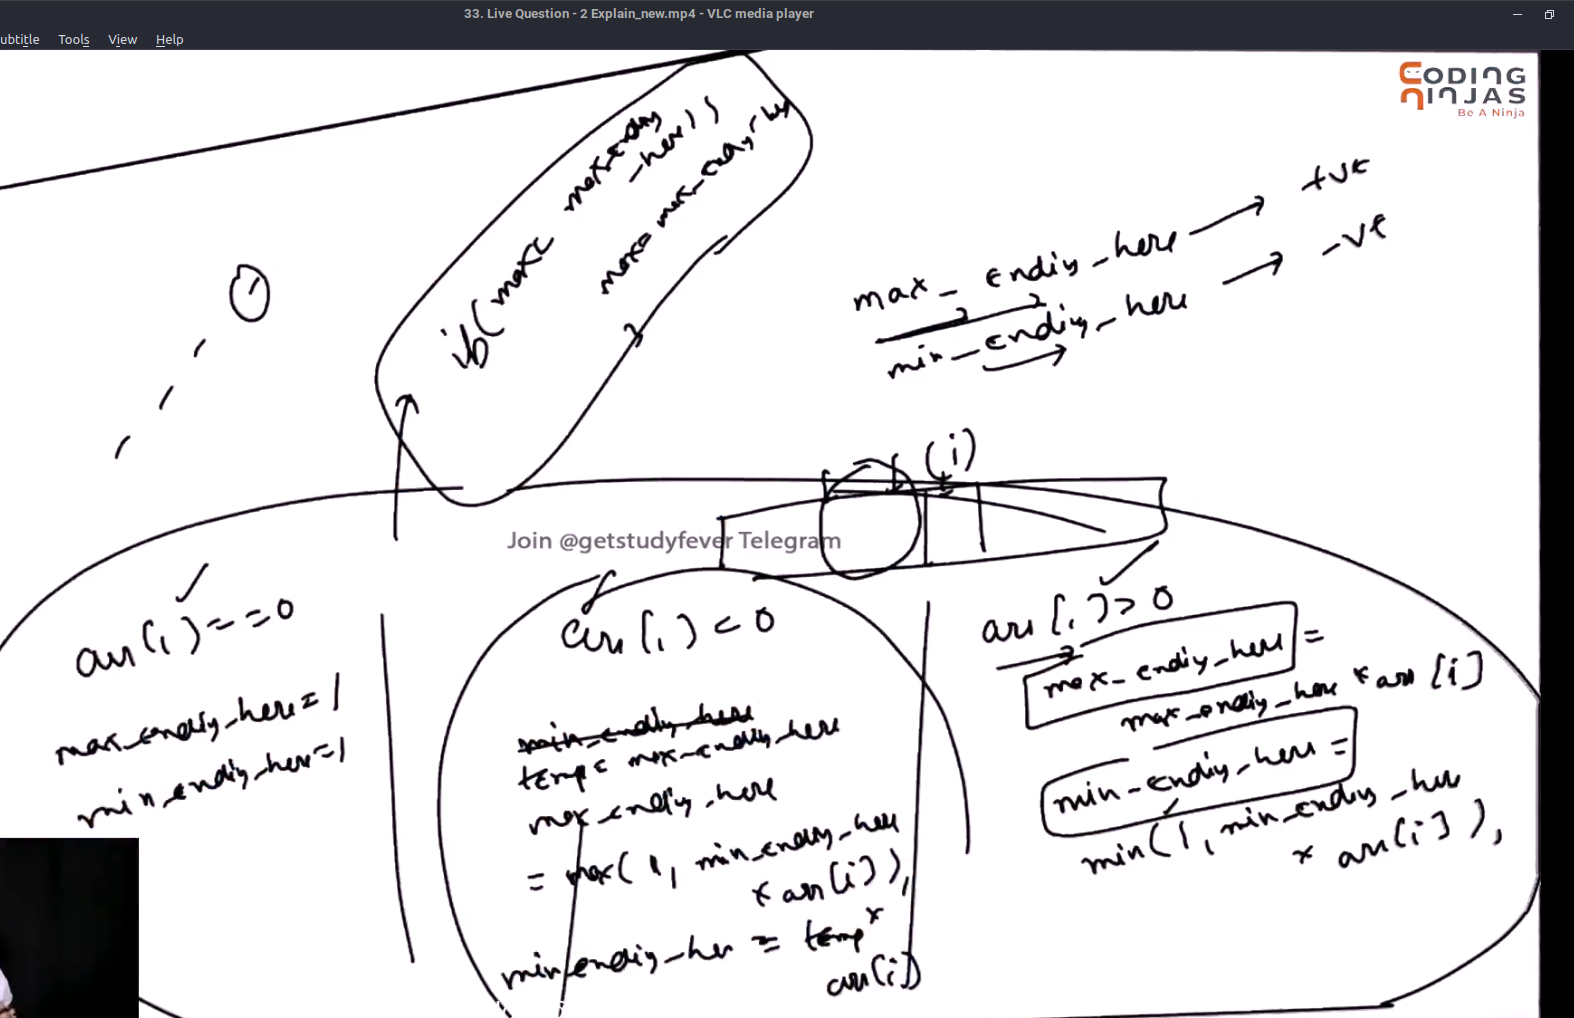 33. Live Question - 2 Explain_new.mp4 - VLC media player
ubtitle Tools View Help
CODING
NINJAS
Be A Ninja
if (max < max_ending
_here))
max = max_ending_here
max_ending_here → +ve
min_ending_here → -ve
(i)
Join @getstudyfever Telegram
arr(i) == 0
max_ending_here = 1
min_ending_here = 1
arr(i) < 0
min_ending_here
temp = max_ending_here
max_ending_here
= max(1, min_ending_here
* arr(i)),
min_ending_her = temp *
arr(i)
arr[i) > 0
max_ending_here =
max_ending_here * arr[i]
min_ending_here =
min(1, min_ending_here
* arr[i]),